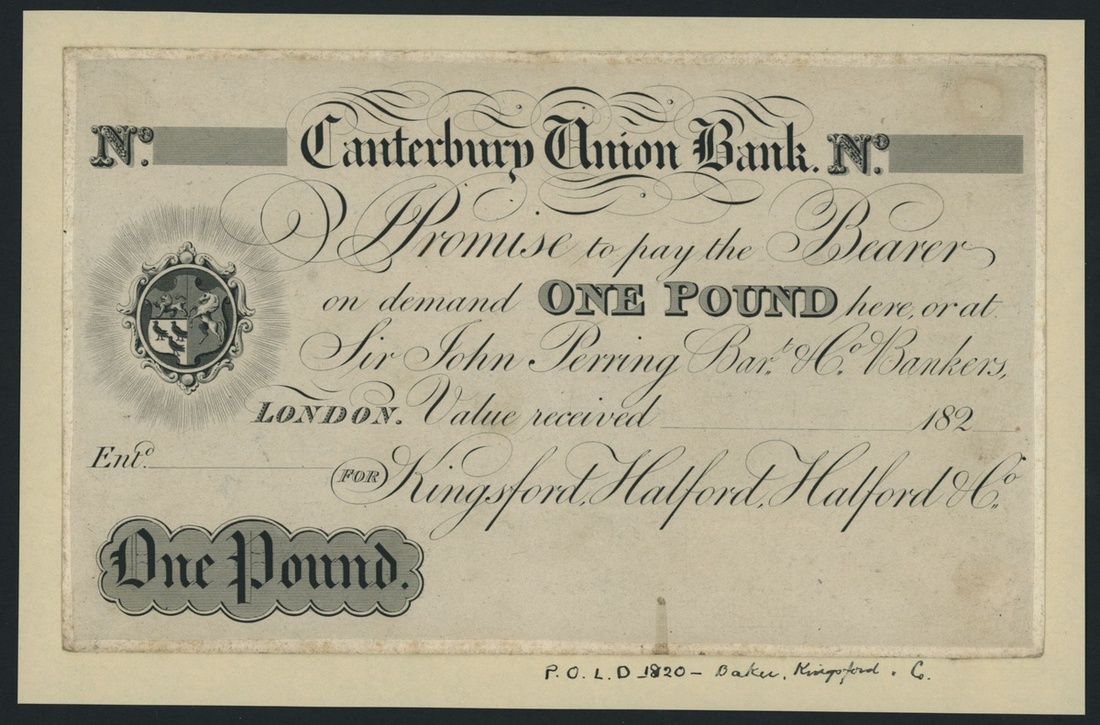 No. Canterbury Union Bank. No.
I Promise to pay the Bearer
on demand ONE POUND here, or at
Sir John Perring Bart. & Co. Bankers,
LONDON. Value received 182
Entd.
FOR Kingsford, Halford, Halford & Co.
One Pound.
P.O.L.D 1820 - Baker, Kingsford & Co.